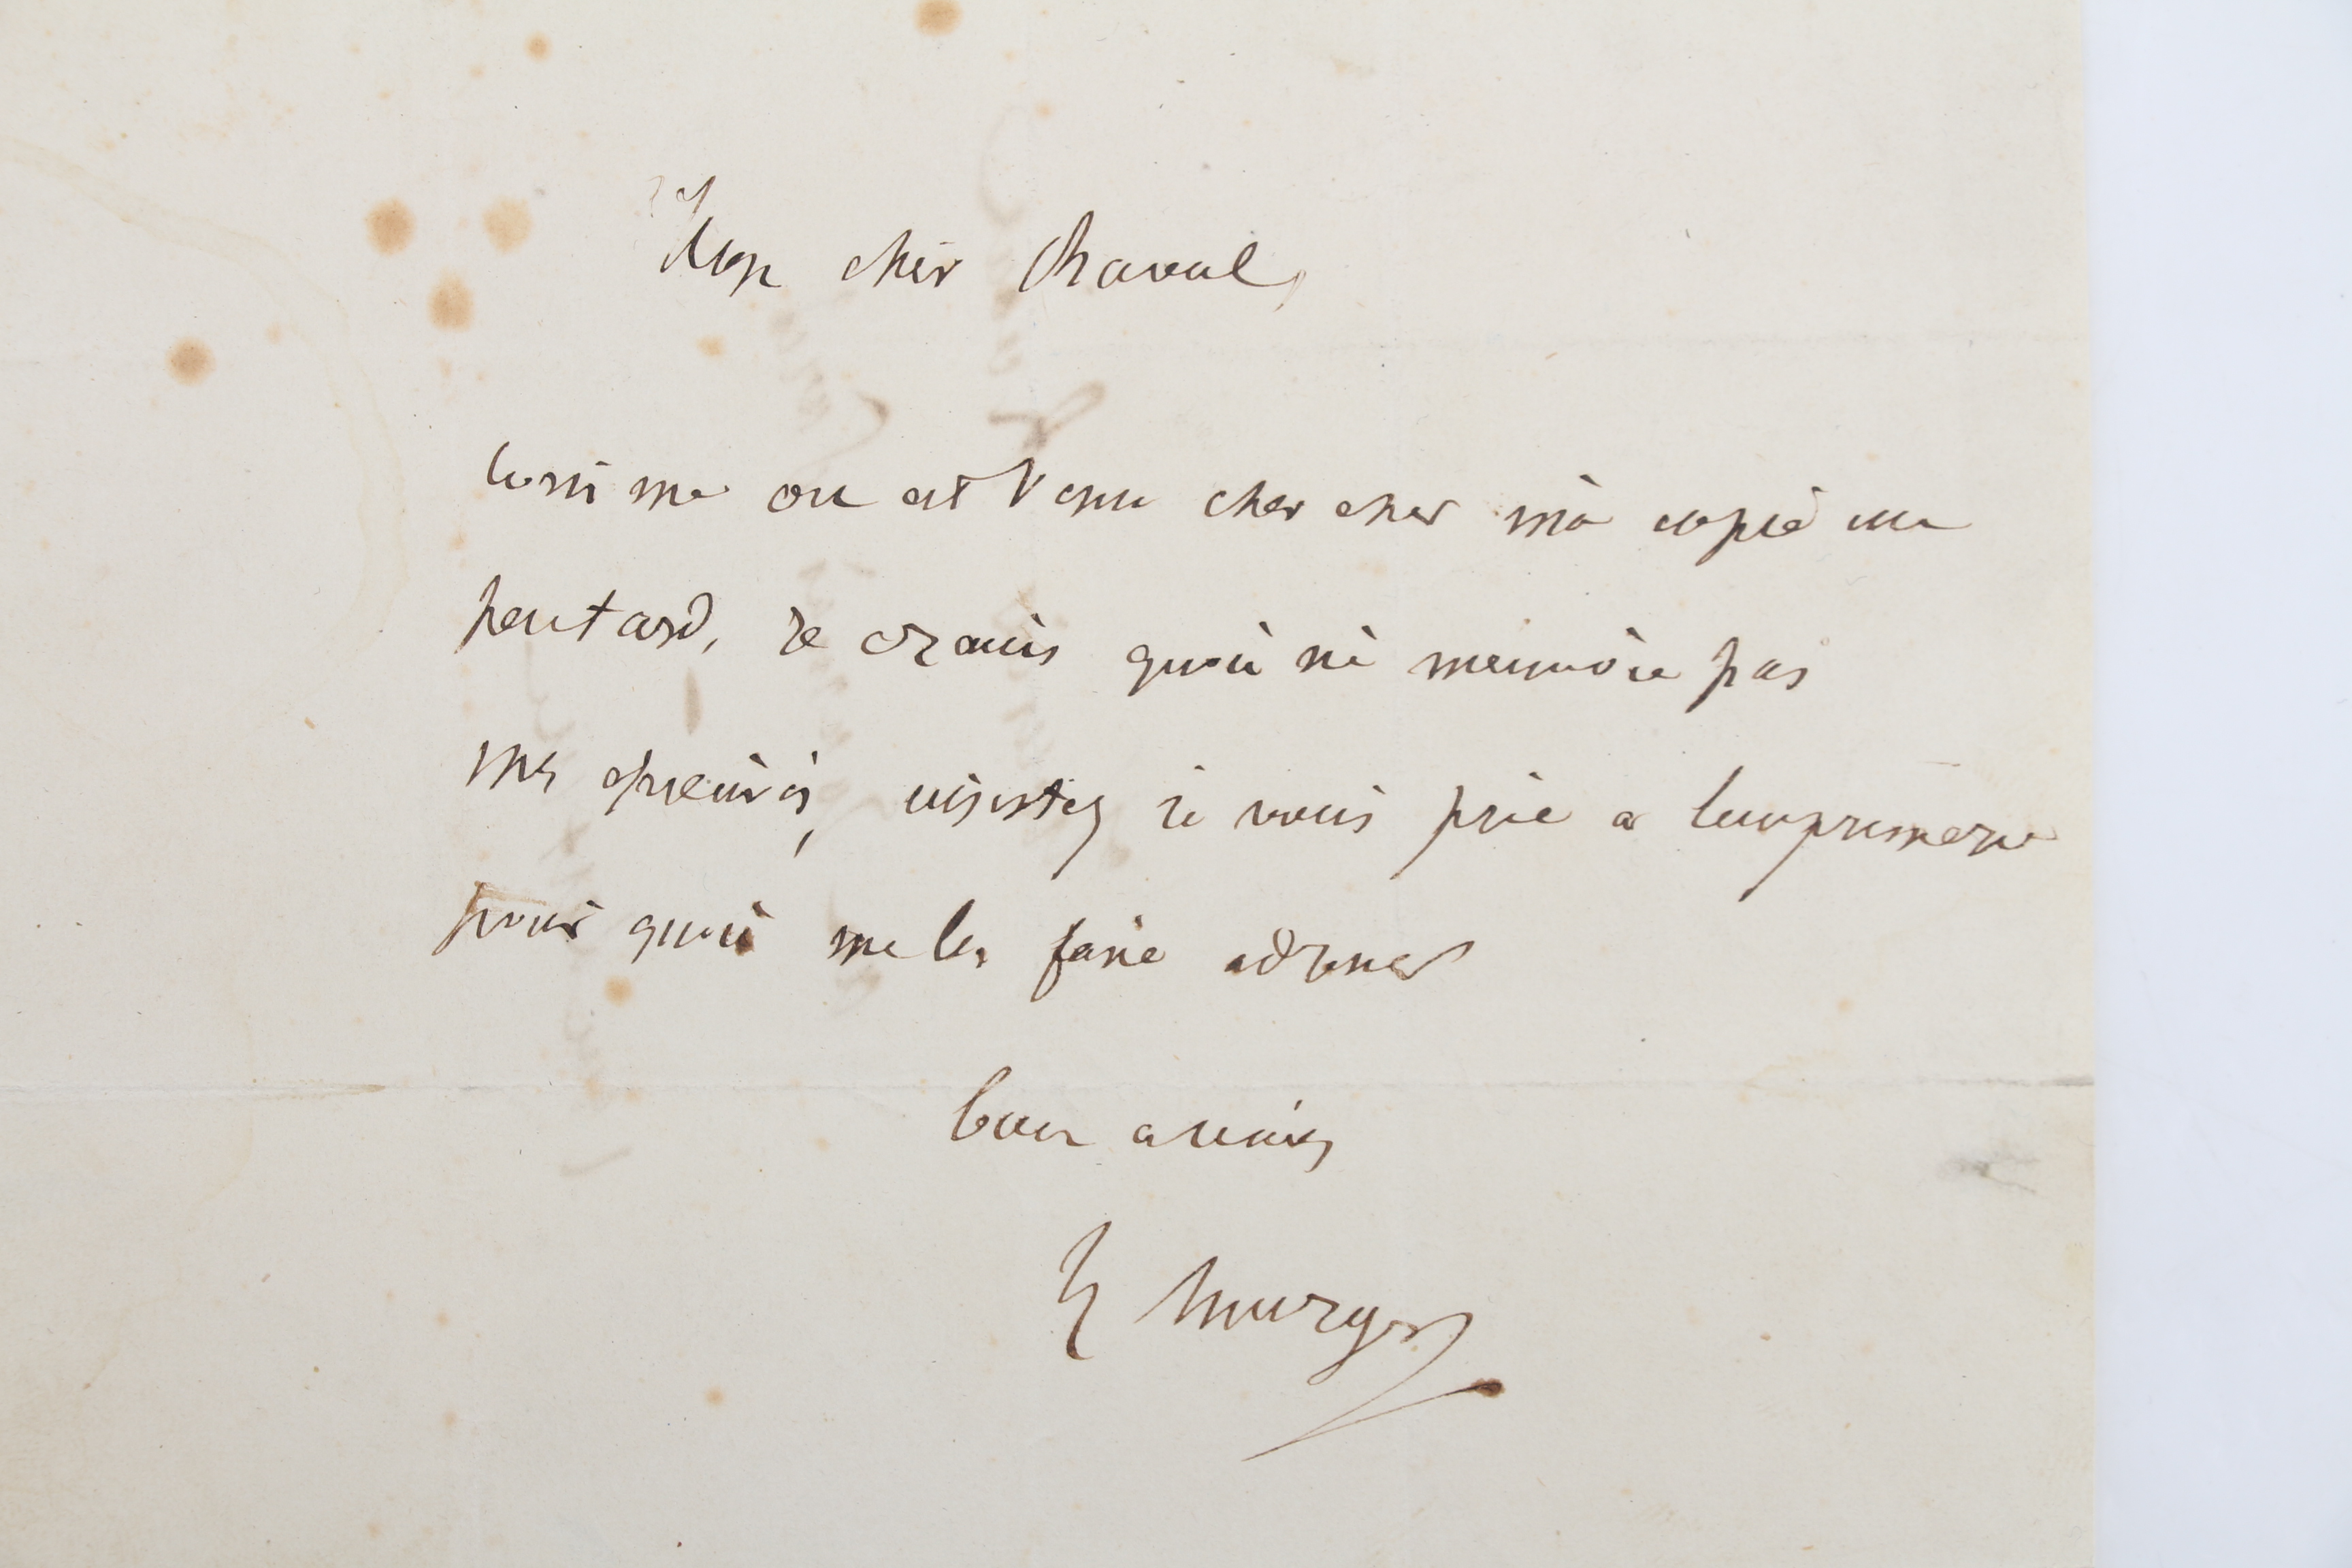 Mon cher Chavul,
Comme on est venu chercher ma copie un
peu tard, Je crains qu'on ne m'envoie pas
mes epreuves, insistez je vous prie a l'imprimerie
pour qu'on me les fasse adresser
bien a vous
H Murger